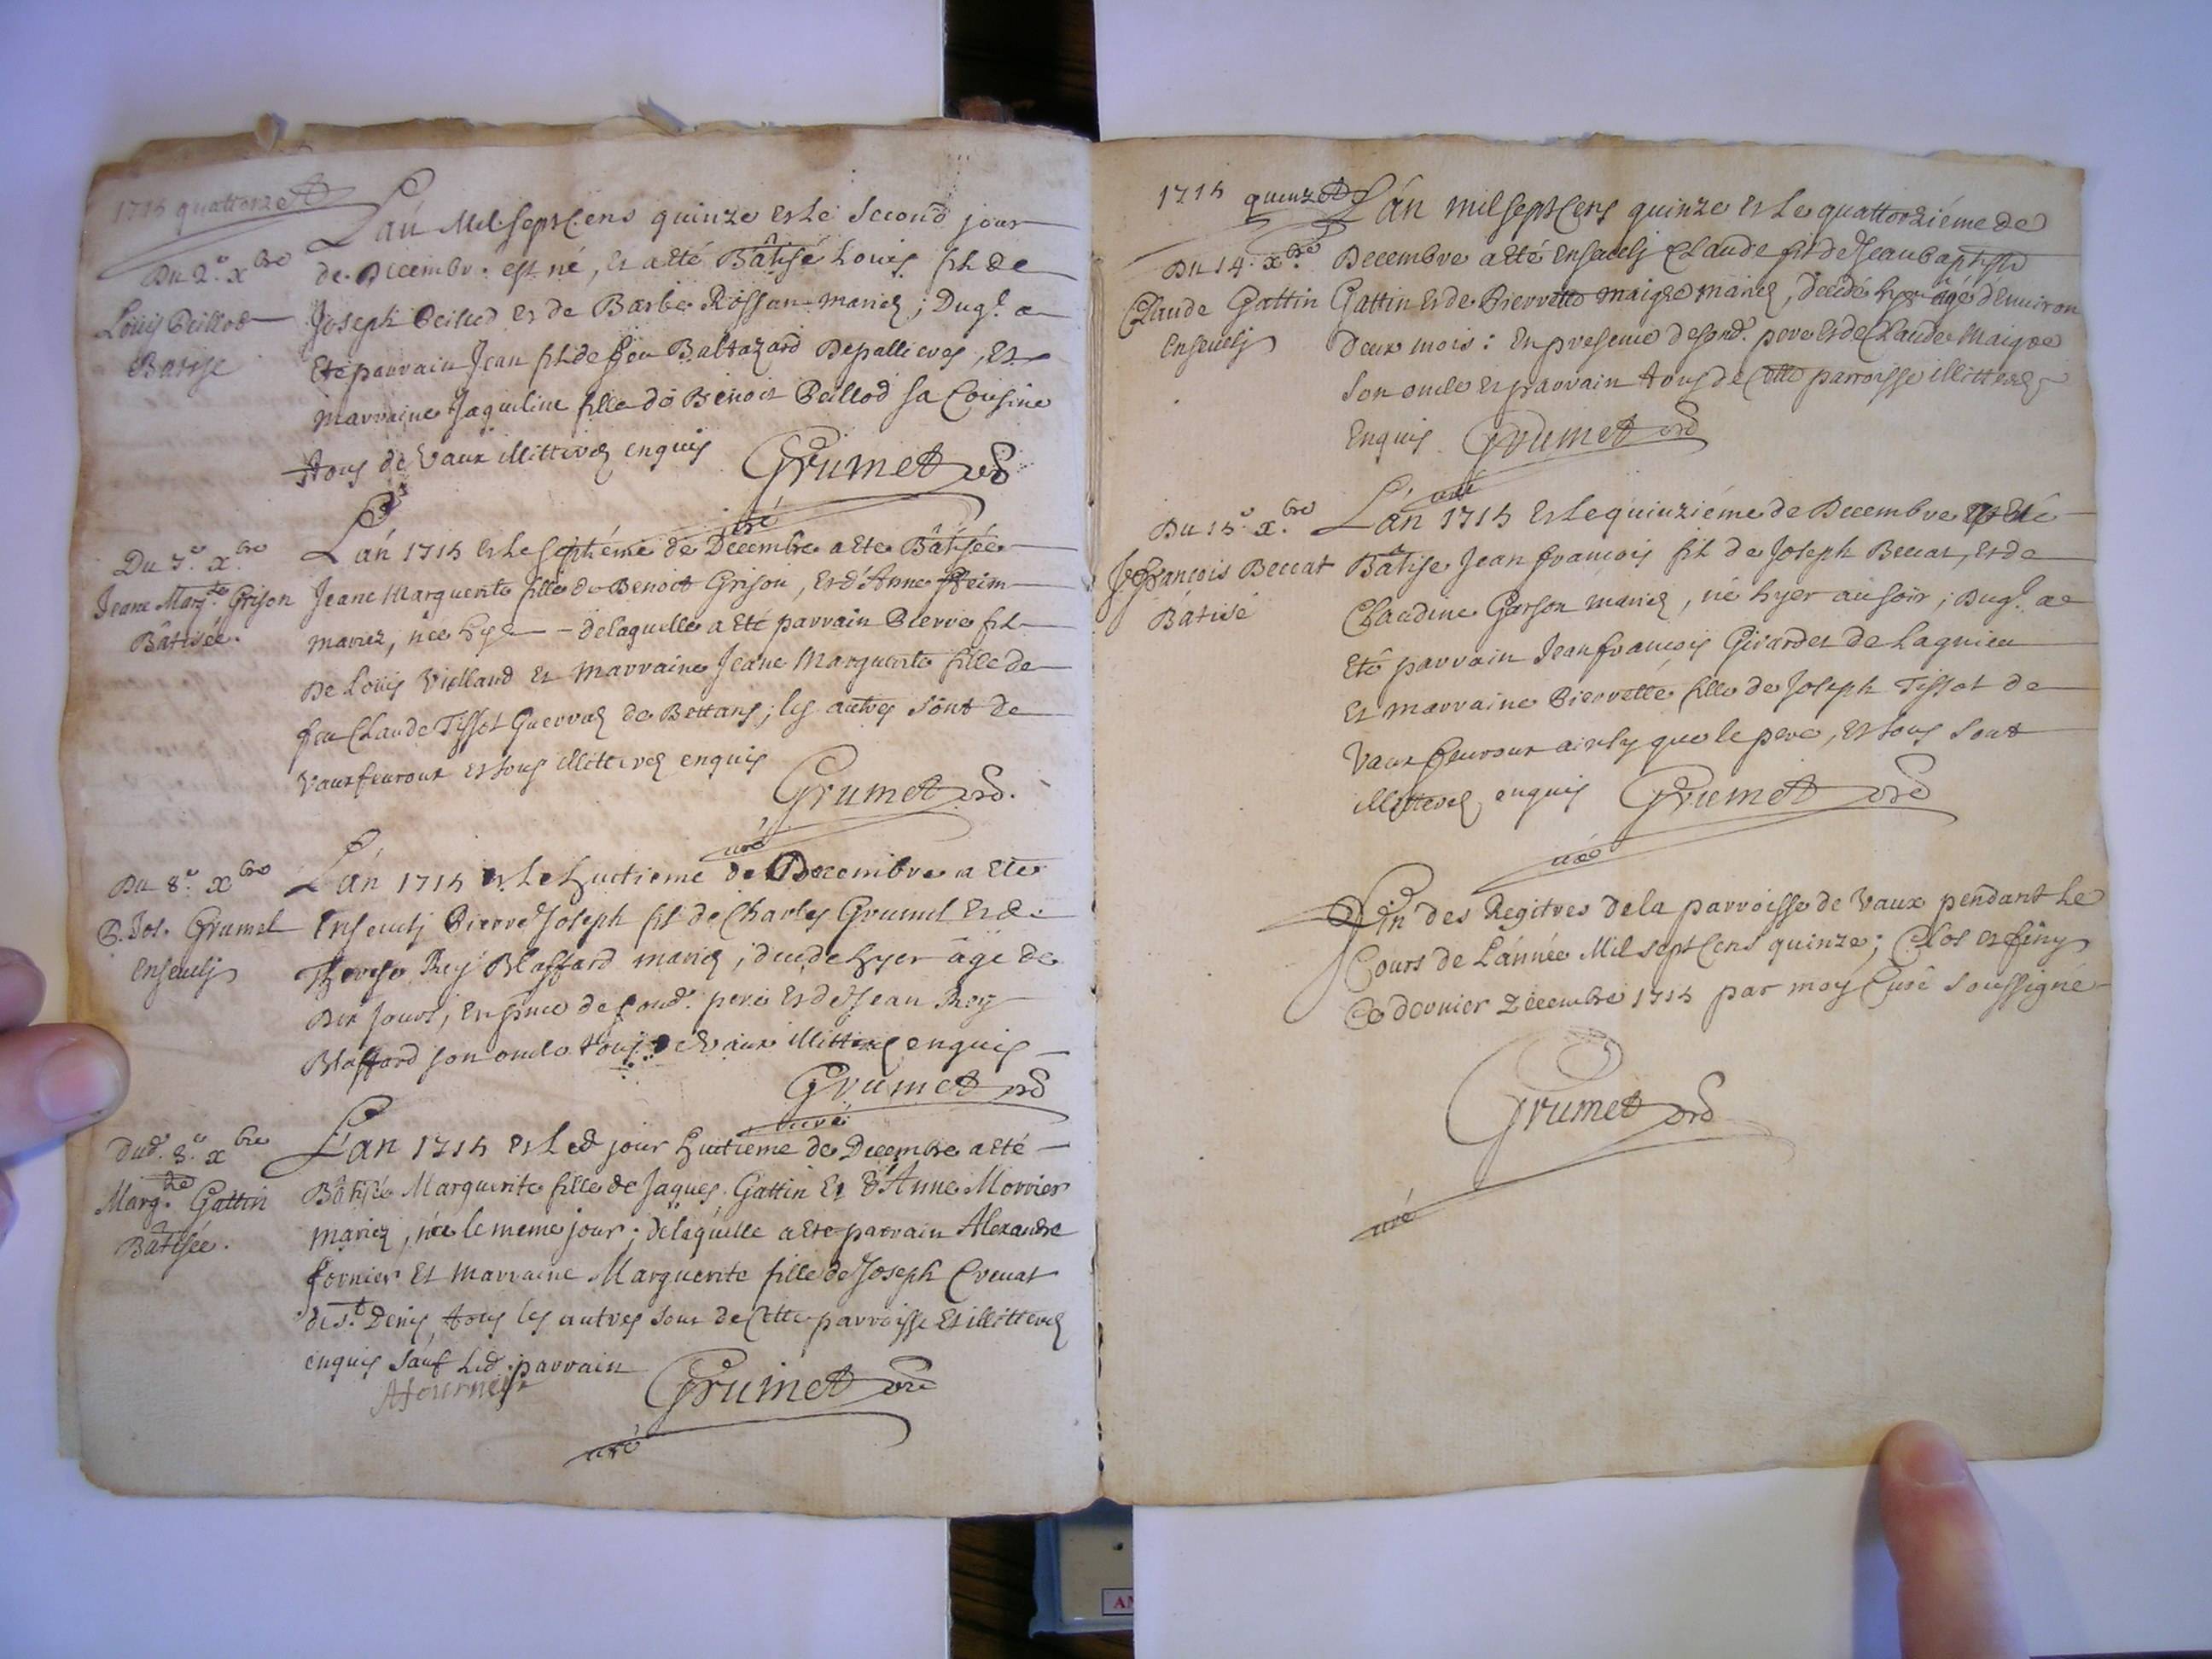 1715 quattorze
Du 2.e xbre
Louis Peillod
Batisé
L'an Mil sept Cens quinze et le second jour
de Decembre est né, et a eté Bâtisé Louis fil de
Joseph Peillod et de Barbe Rossan mariez; Duql. a
eté parrain Jean fil de feu Baltazard Depallieres, Et
marraine Jaqueline fille de Benoit Peillod sa Cousine
tous de Vaux illitterez enquis
Grumet
curé
Du 7.e xbre
Jeane Marg.te Grison
Bâtisée.
L'an 1715 et le septiéme de Decembre a eté Bâtisée
Jeane Marguerite fille de Benoit Grison, et d'Anne
mariez, née hyer - de laquelle a eté parrain Pierre fil
De Louis Villand et marraine Jeane Marguerite fille de
feu Claude Tissot Guerraz de Bettans; les autres sont de
Vaux feuroux et tous illitterez enquis
Grumet
curé
Du 8.e xbre
P. Jos. Grumel
Enseveli
L'an 1715 et le huitieme de Decembre a eté
Enseveli Pierre Joseph fil de Charles Grumel et de
Therese Rey Blaffard mariez; decedé hyer âgé de
Dix jours, En pnce de sond. pere et de Jean Rey
Blaffard son oncle tous de Vaux illitterez enquis
Grumet
curé
Dud. 8.e xbre
Marg.te Gattin
Bâtisée.
L'an 1715 et led jour huitieme de Decembre a eté
Bâtisée Marguerite fille de Jaques Gattin et d'Anne Morrier
mariez, née le meme jour; de laquelle a eté parrain Alexandre
fornier Et marraine Marguerite fille de Joseph Crevat
de St. Denis, tous les autres sont de Cette parroisse et illitterez
enquis sauf led. parrain
Afournier
Grumet
curé
1715 quinze
Du 14. xbre
Claude Gattin
Enseveli
L'án mil sept Cens quinze et le quattorziéme de
Decembre a eté enseveli Claude fil de Jean baptiste
Gattin et de Pierrette maigre mariez, decedé hyer âgé d'Environ
deux mois: En presence de sond. pere et de Claude Maigre
son oncle et parrain tous de Cette parroisse illitterez
Enquis
Grumet
curé
Du 15.e xbre
J. François Beccat
Bâtisé
L'án 1715 et le quinziéme de Decembre a eté
Bâtisé Jean francois fil de Joseph Beccat, et de
Claudine Garson mariez, né hyer au soir; Duql. a
Eté parrain Jean francois Girardet de Lagnieu
Et marraine Pierrette fille de Joseph Tissot de
Vaux feuroux ainsy que le pere, et tous sont
illitterez enquis
Grumet
curé
Fin des Regitres de la parroisse de Vaux pendant le
Cours de L'année Mil sept Cens quinze; Clos et finy
Ce dernier Decembre 1715 par moy Curé soussigné
Grumet
curé